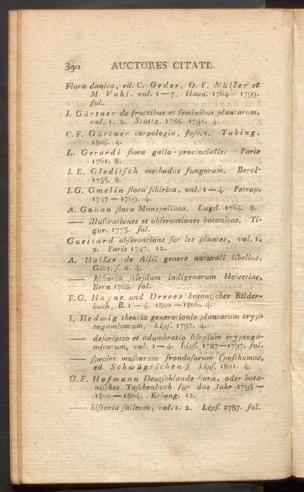 390 AUCTORES CITATI.
Flora danica, ed. C. Oeder, O. F. Müller et
M. Vahl. vol. 1—7. Havn. 1764—1799.
fol.
I. Gärtner de fructibus et seminibus plantarum,
vol. 1. 2. Stuttg. 1788. 1791. 4.
C. F. Gärtner carpologia, fasc. 1. Tubing.
1805. 4.
L. Gerardi flora gallo-provincialis. Paris
1761. 8.
I. E. Gleditsch methodus fungorum. Berol.
1753. 8.
I. G. Gmelin flora sibirica, vol. 1—4. Petrop.
1747—1769. 4.
A. Gouan flora Monspeliaca. Lugd. 1765. 8.
— illustrationes et observationes botanicae. Ti-
gur. 1773. fol.
Guettard observations sur les plantes, vol. 1.
2. Paris 1747. 12.
A. Haller de Allii genere naturali libellus.
Gött. s. a. 4.
— historia stirpium indigenarum Helvetiae.
Bern 1768. fol.
F. G. Hayne und Dreves botanisches Bilder-
buch, B. 1—4. 1800—1806. 4.
I. Hedwig theoria generationis plantarum cryp-
togamicarum. Lips. 1797. 4.
— descriptio et adumbratio stirpium cryptoga-
micarum, vol. 1—4. Lips. 1787—1797. fol.
— species muscorum frondosorum (posthumae,
ed. Schwägrichen.) Lips. 1801. 4.
G. F. Hofmann Deutschlands flora, oder bota-
nisches Taschenbuch für das Jahr 1795—
1800—1804. Erlang. 12.
— historia salicum, vol. 1. 2. Lips. 1787. fol.